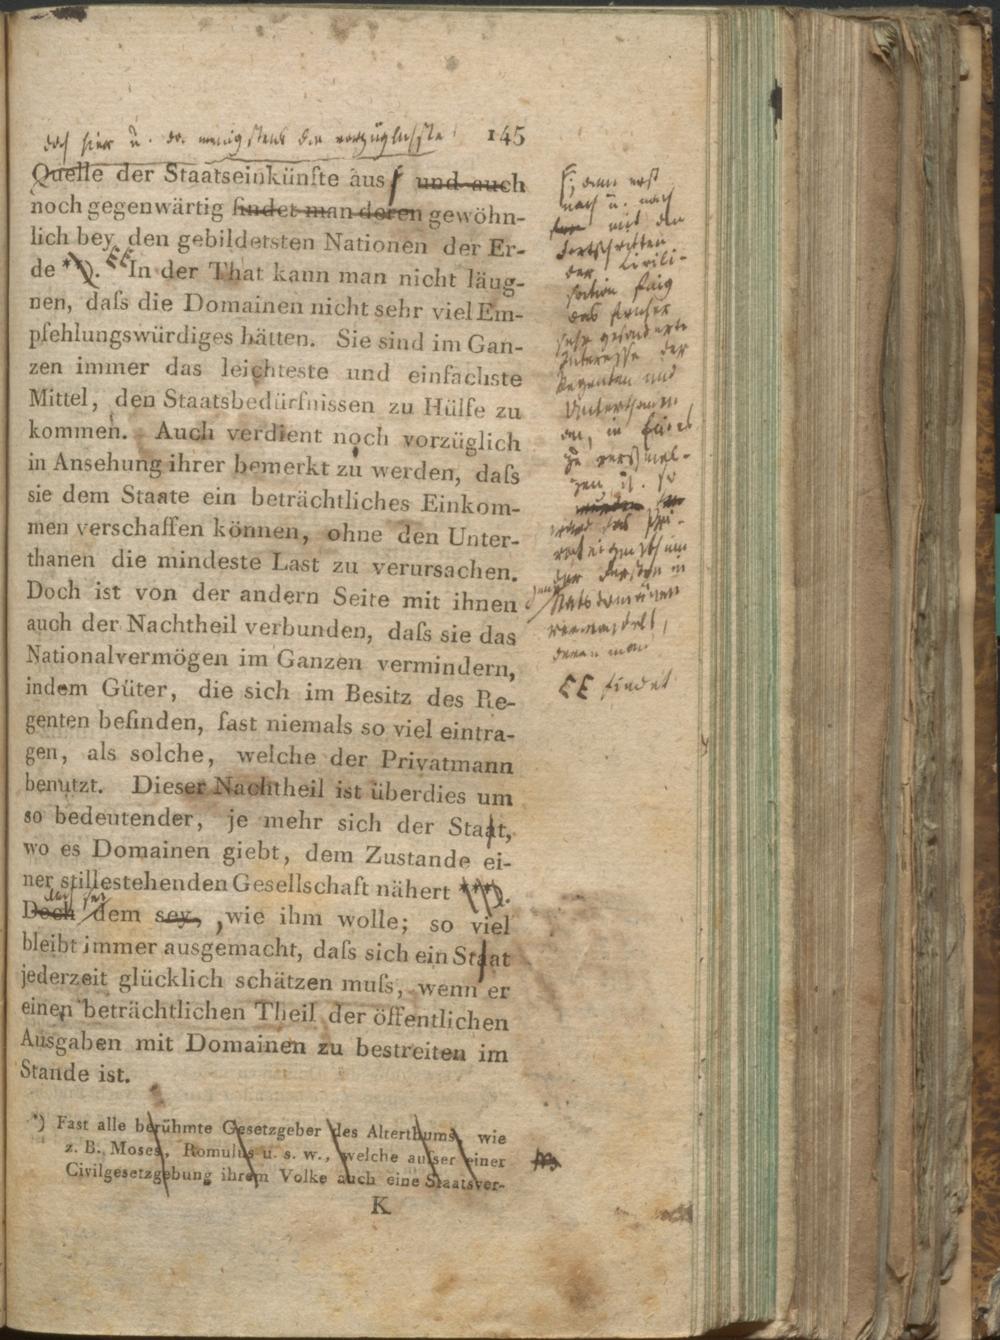 doch hier u. da wenigstens die vorzüglichste
145
Quelle der Staatseinkünfte aus und auch
noch gegenwärtig findet man deren gewöhn-
lich bey den gebildetsten Nationen der Er-
de **). EE In der That kann man nicht läug-
nen, daſs die Domainen nicht sehr viel Em-
pfehlungswürdiges hätten. Sie sind im Gan-
zen immer das leichteste und einfachste
Mittel, den Staatsbedürfnissen zu Hülfe zu
kommen. Auch verdient noch vorzüglich
in Ansehung ihrer bemerkt zu werden, daſs
sie dem Staate ein beträchtliches Einkom-
men verschaffen können, ohne den Unter-
thanen die mindeste Last zu verursachen.
Doch ist von der andern Seite mit ihnen
auch der Nachtheil verbunden, daſs sie das
Nationalvermögen im Ganzen vermindern,
indem Güter, die sich im Besitz des Re-
genten befinden, fast niemals so viel eintra-
gen, als solche, welche der Privatmann
benutzt. Dieser Nachtheil ist überdies um
so bedeutender, je mehr sich der Staat,
wo es Domainen giebt, dem Zustande ei-
ner stillestehenden Gesellschaft nähert ***).
Doch dem sey, wie ihm wolle; so viel
bleibt immer ausgemacht, daſs sich ein Staat
jederzeit glücklich schätzen muſs, wenn er
einen beträchtlichen Theil der öffentlichen
Ausgaben mit Domainen zu bestreiten im
Stande ist.
; denn erst
nach u. nach
mit den
Fortschritten
der Civili-
sation fing
das früher
sehr gesonderte
Interesse der
Regenten und
Unterthanen
an, in Eines
zu verschmel-
zen u. so
ward das Pri-
vateigenthum
der Person in
Statsdomänen
verwandelt,
deren man
EE findet
*) Fast alle berühmte Gesetzgeber des Alterthums, wie
z. B. Moses, Romulus u. s. w., welche auſser einer
Civilgesetzgebung ihrem Volke auch eine Staatsver-
K